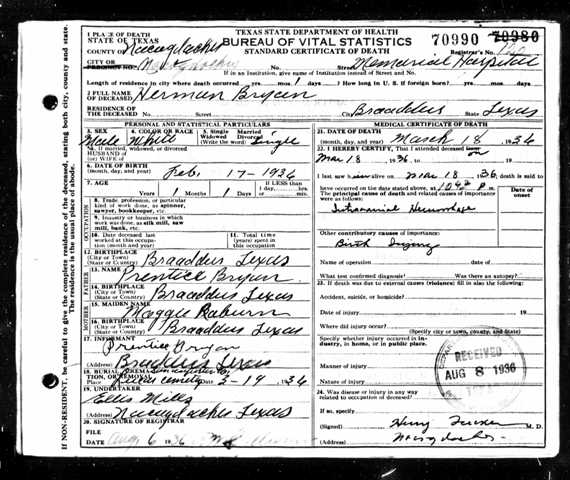 TEXAS STATE DEPARTMENT OF HEALTH
BUREAU OF VITAL STATISTICS
STANDARD CERTIFICATE OF DEATH
70990 70980
Registrar's No.
1 PLACE OF DEATH
STATE OF TEXAS
COUNTY OF Nacogdoches
CITY OR
PRECINCT NO. Nacogdoches No. Street Memorial Hospital
If in an Institution, give name of Institution instead of Street and No.
Length of residence in city where death occurred yrs. mos. 1 days. How long in U. S. if foreign born? yrs. mos. days.
2 FULL NAME
OF DECEASED Herman Bryan
RESIDENCE OF
THE DECEASED No. Street City Braaddus State Texas
PERSONAL AND STATISTICAL PARTICULARS
3. SEX Male
4. COLOR OR RACE White
5. Single Married
Widowed Divorced
(Write the word) Single
5a. If married, widowed, or divorced
HUSBAND of
(or) WIFE of
6. DATE OF BIRTH
(Month, day, and year) Feb. 17-1936
7. AGE Years Months 1 Days 1 If LESS than
1 day, hrs.
or min.
OCCUPATION
8. Trade, profession, or particular
kind of work done, as spinner,
sawyer, bookkeeper, etc.
9. Industry or business in which
work was done, as silk mill, saw
mill, bank, etc.
10. Date deceased last
worked at this occupation
(month and year)
11. Total time (years)
spent in this
occupation
12. BIRTHPLACE
(City or Town)
(State or Country) Braaddus Texas
FATHER
13. NAME Prentice Bryan
14. BIRTHPLACE
(City or Town)
(State or Country) Braaddus Texas
MOTHER
15. MAIDEN NAME Maggie
16. BIRTHPLACE
(City or Town)
(State or Country) Braaddus Texas
17. INFORMANT Prentice Bryan
(Address) Braddus Texas
18. BURIAL, CREMATION, OR REMOVAL
Place Date 3-19 1936
19. UNDERTAKER Ellis Mills
(Address) Nacogdoches Texas
20. SIGNATURE OF REGISTRAR
FILE
DATE Aug 6 1936
MEDICAL CERTIFICATE OF DEATH
21. DATE OF DEATH
(month, day, and year) March 18, 1936
22. I HEREBY CERTIFY, That I attended deceased from on
Mar 18 1936, to Mar 18 1936
I last saw him alive on Mar 18 1936, death is said to
have occurred on the date stated above, at P. m.
The principal cause of death and related causes of importance
were as follows:
Date of
onset
Intracranial Hemorrhage
Other contributory causes of importance:
Birth Injury
Name of operation date of
What test confirmed diagnosis? Was there an autopsy?
23. If death was due to external causes (violence) fill in also the following:
Accident, suicide, or homicide?
Date of injury 19
Where did injury occur?
(Specify city or town, county, and State)
Specify whether injury occurred in industry, in home, or in public place.
Manner of injury
Nature of injury
24. Was disease or injury in any way
related to occupation of deceased?
If so, specify
(Signed) M. D.
(Address) Nacogdoches
RECEIVED
AUG 8 1936
IF NON-RESIDENT, be careful to give the complete residence of the deceased, stating both city, county and state.
The residence is the usual place of abode.